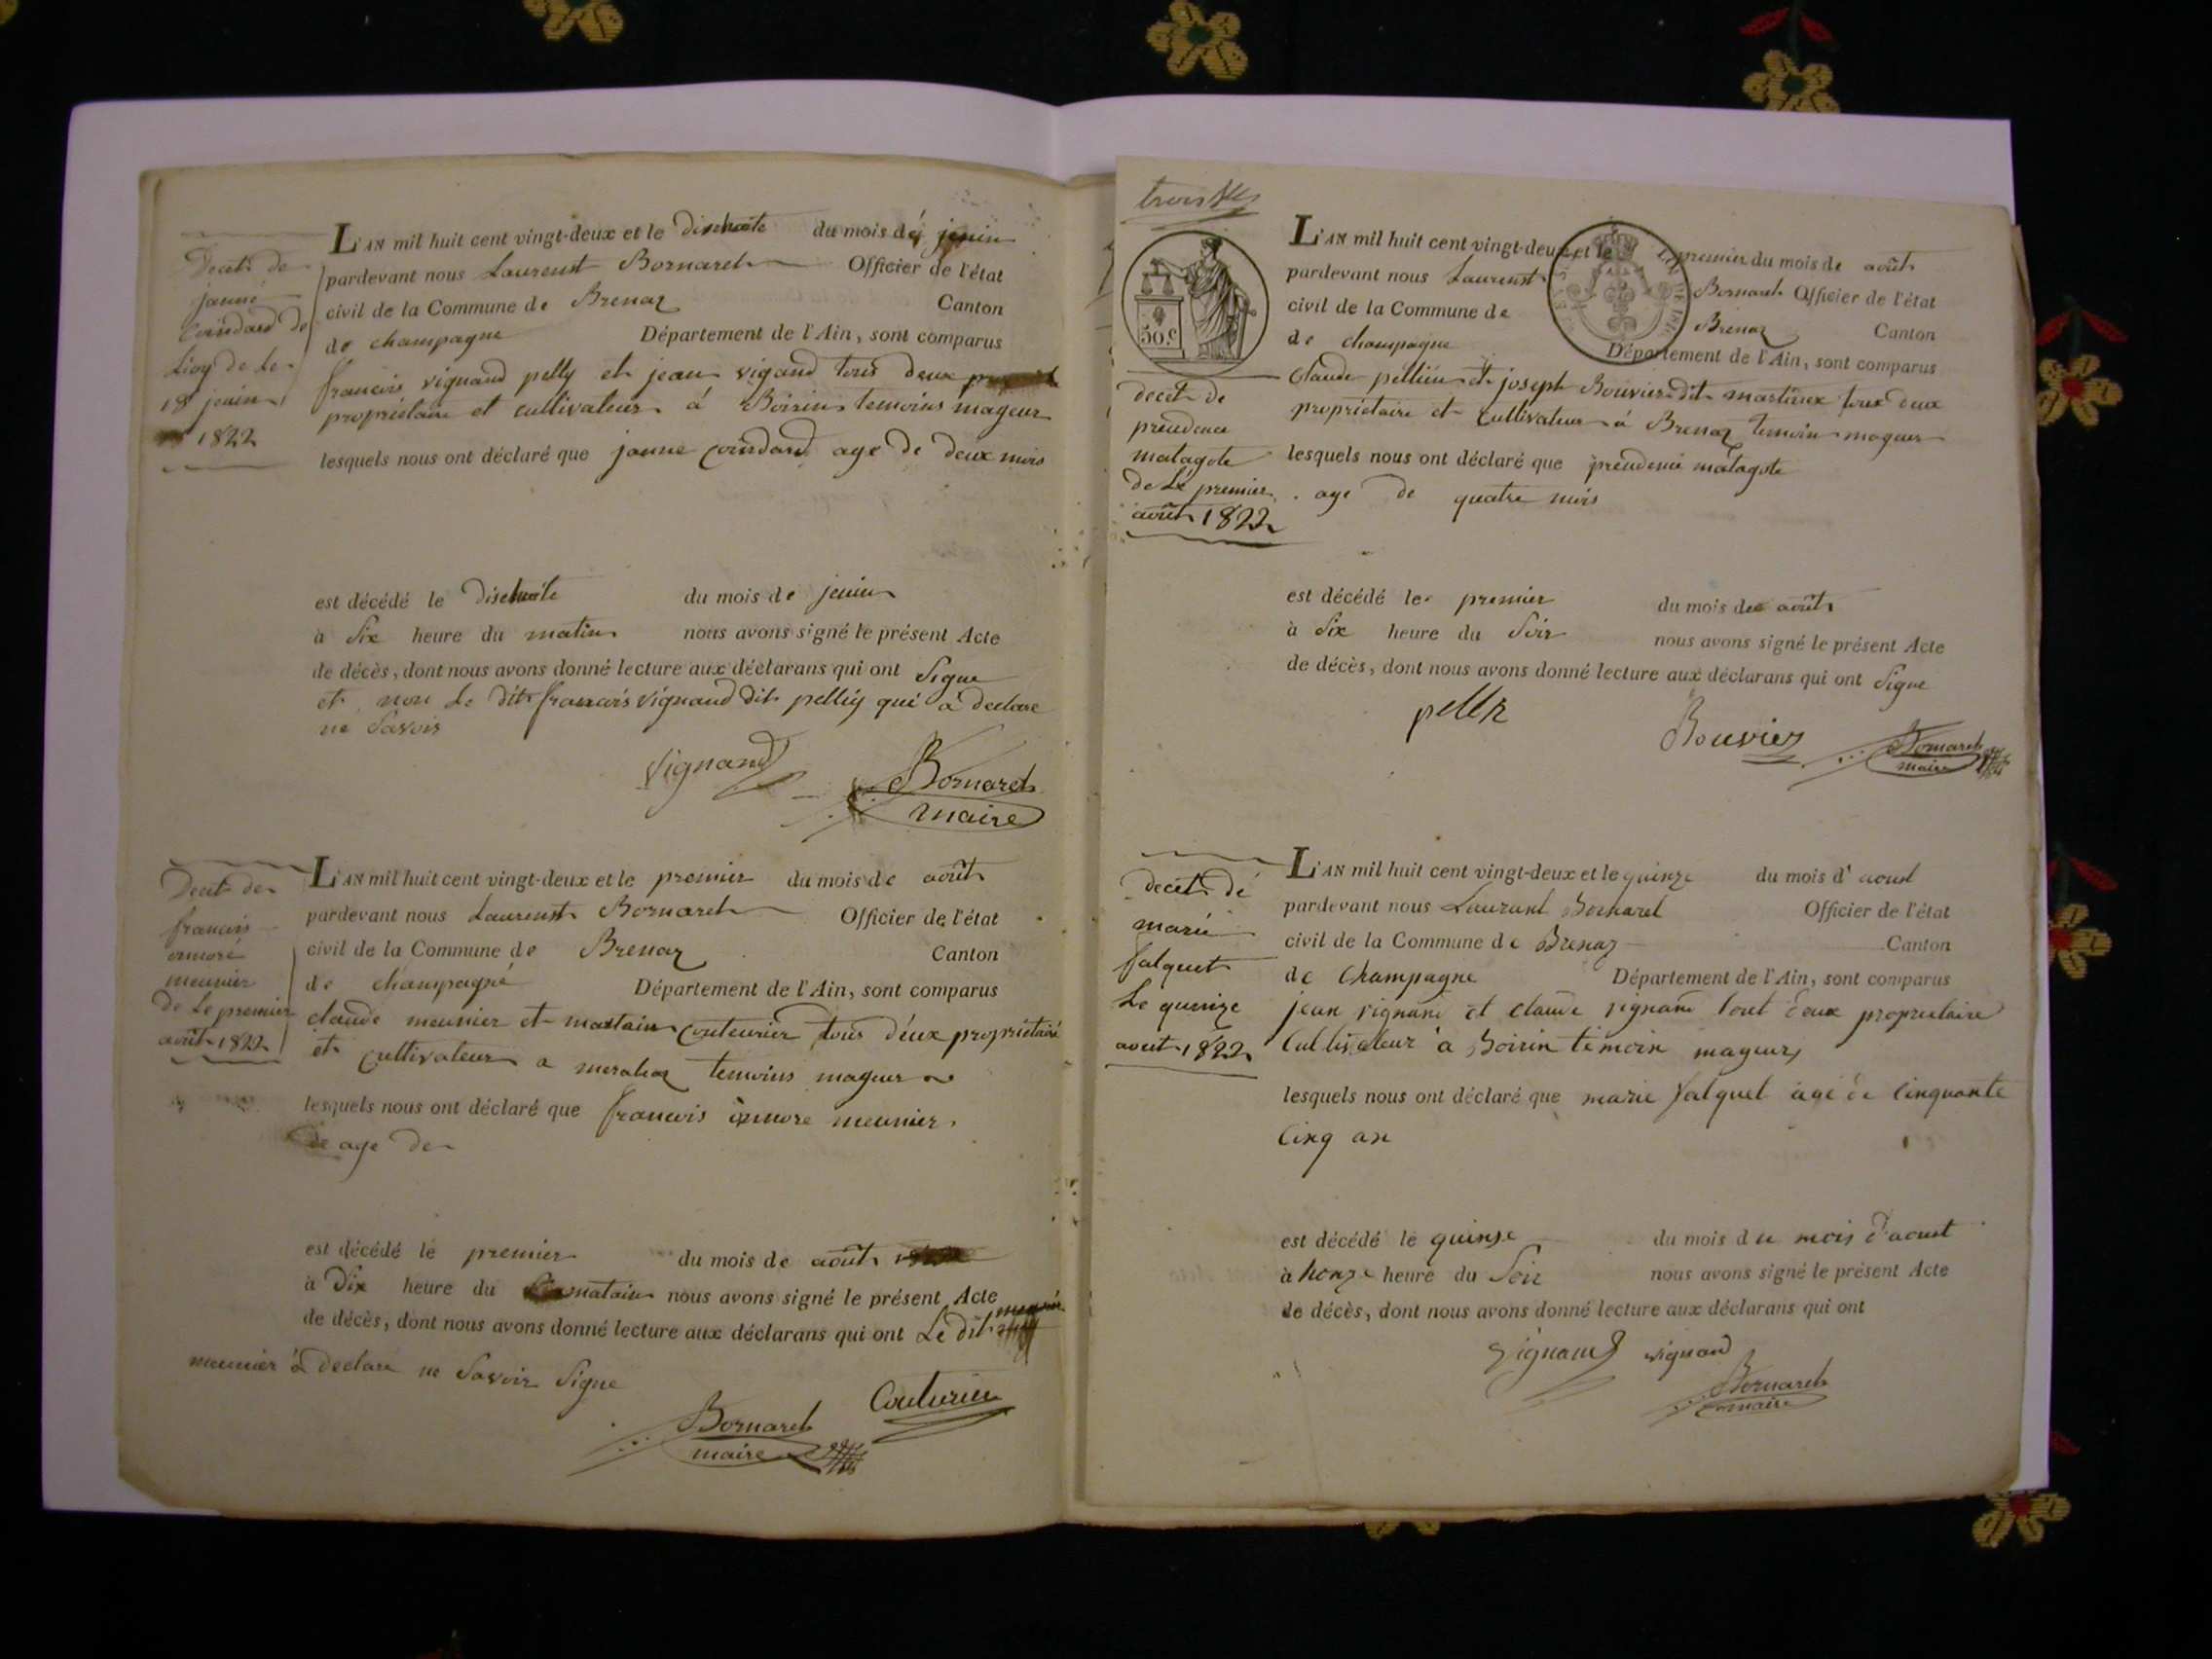 Decet de
janne
Coindard de
18 jenin
1822
L'AN mil huit cent vingt-deux et le dixhuite du mois de jenin
pardevant nous Laurenst Bornaret Officier de l'état
civil de la Commune de Brenaz Canton
de champagne Département de l'Ain, sont comparus
francois vignand pelly et jean vigand tous deux
propriétaire et cultivateur á Boirin temoins mageur
lesquels nous ont déclaré que janne Coindard age de deux mois
est décédé le dixehuite du mois de jenin
à Six heure du matin nous avons signé le présent Acte
de décès, dont nous avons donné lecture aux déclarans qui ont Signe
et non le dit francois vignaud dit pelliy qui a declare
ne Savoir
Vignand
Bornaret
maire
Decet de
francois
ormoré
meunier
de Le premier
août 1822
L'AN mil huit cent vingt-deux et le premier du mois de août
pardevant nous Laurenst Bornaret Officier de l'état
civil de la Commune de Brenaz Canton
de champagné Département de l'Ain, sont comparus
claude meunier et martain Couteurier tous deux propriétairé
et Cultivateur a meraleaz temoins mageur
lesquels nous ont déclaré que francois onmore meunier
age de
est décédé le premier du mois de août
à Dix heure du matain nous avons signé le présent Acte
de décès, dont nous avons donné lecture aux déclarans qui ont Le dit
meunier à Declaré ne Savoir Signe
Bornaret
maire
Couturier
trois
50.c
decet de
preudence
matagote
de Le premier
août 1822
L'AN mil huit cent vingt-deux et le premier du mois de août
pardevant nous Laurenst Bornaret Officier de l'état
civil de la Commune de Brenaz Canton
de champagne Département de l'Ain, sont comparus
Claude pelliin et joseph Bouvier dit martinex tous deux
propriétaire et Cultivateur á Brenaz temoin mageur
lesquels nous ont déclaré que preudence matagote
age de quatre mois
est décédé le premier du mois de août
à Six heure du Soir nous avons signé le présent Acte
de décès, dont nous avons donné lecture aux déclarans qui ont Signe
Bouvier
Bornaret
maire
decet dé
marie
falquet
Le quinze
aout 1822
L'AN mil huit cent vingt-deux et le quinze du mois d' aoust
pardevant nous Laurant Bornaret Officier de l'état
civil de la Commune de Brenaz Canton
de Champagne Département de l'Ain, sont comparus
jean vignand et claude vignand tout deux proprietaire
Cultivateur à Boirin témoin mageur
lesquels nous ont déclaré que marie falquet agé de Cinquante
Cinq an
est décédé le quinze du mois du mois d'aoust
à honze heure du Soir nous avons signé le présent Acte
de décès, dont nous avons donné lecture aux déclarans qui ont
Vignand vignand
Bornaret
maire